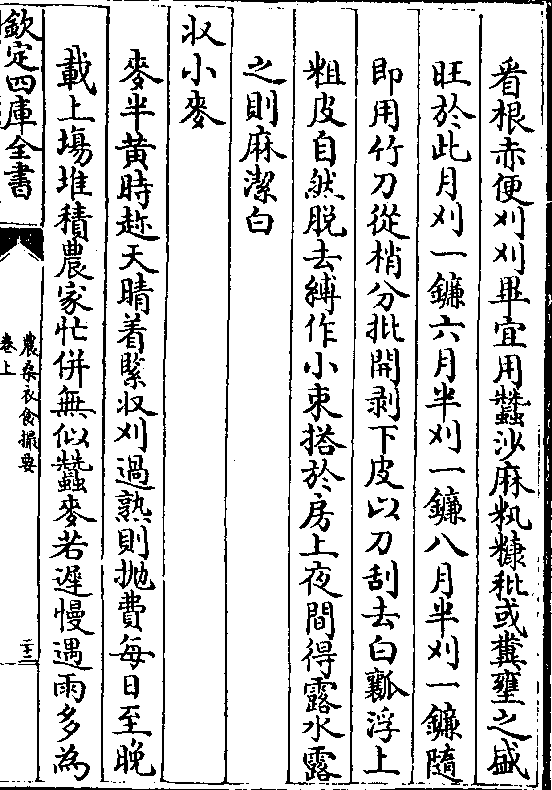 看根赤便刈刈畢宜用蠶沙麻籸糠秕或糞壅之盛
旺於此月刈一鐮六月半刈一鐮八月半刈一鐮隨
即用竹刀從梢分批開剥下皮以刀刮去白瓤浮上
粗皮自然脱去縛作小束搭於房上夜間得露水露
之則麻潔白
収小麥
麥半黄時趂天晴着緊収刈過熟則抛費每日至晚
載上塲堆積農家忙併無似蠶麥若遲慢遇雨多為
欽定四庫全書
農桑衣食撮要
卷上
二十三